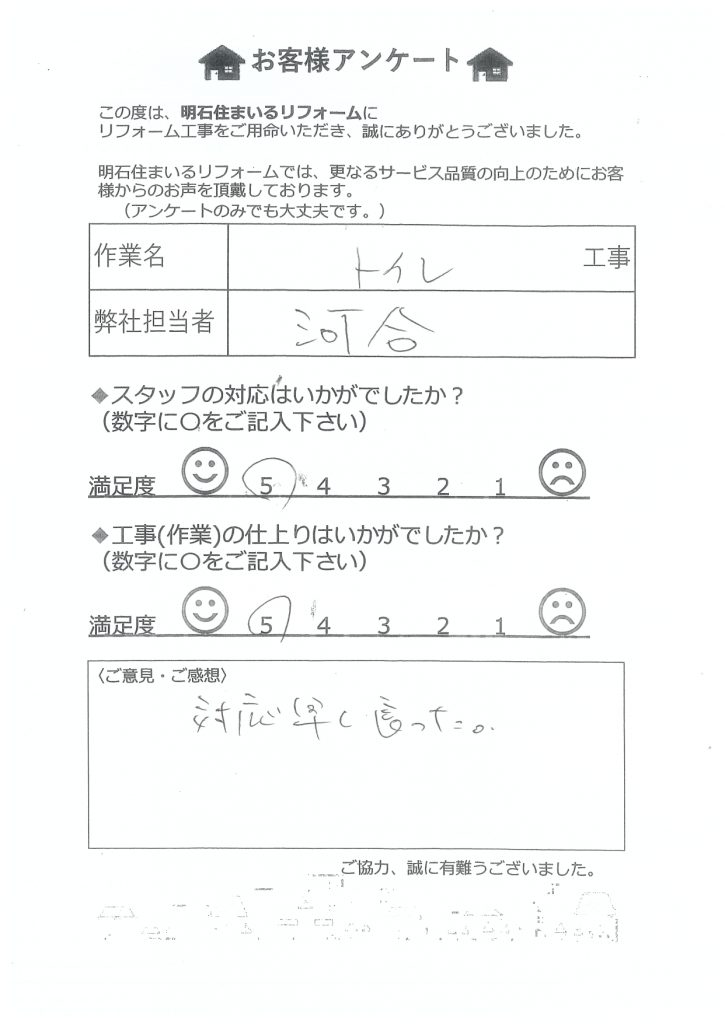 お客様アンケート
この度は、明石住まいるリフォームに
リフォーム工事をご用命いただき、誠にありがとうございました。
明石住まいるリフォームでは、更なるサービス品質の向上のためにお客
様からのお声を頂戴しております。
（アンケートのみでも大丈夫です。）
作業名 トイレ 工事
弊社担当者 河合
◆スタッフの対応はいかがでしたか？
（数字に〇をご記入下さい）
満足度 5 4 3 2 1
◆工事(作業)の仕上りはいかがでしたか？
（数字に〇をご記入下さい）
満足度 5 4 3 2 1
〈ご意見・ご感想〉
対応早く良かった。
ご協力、誠に有難うございました。